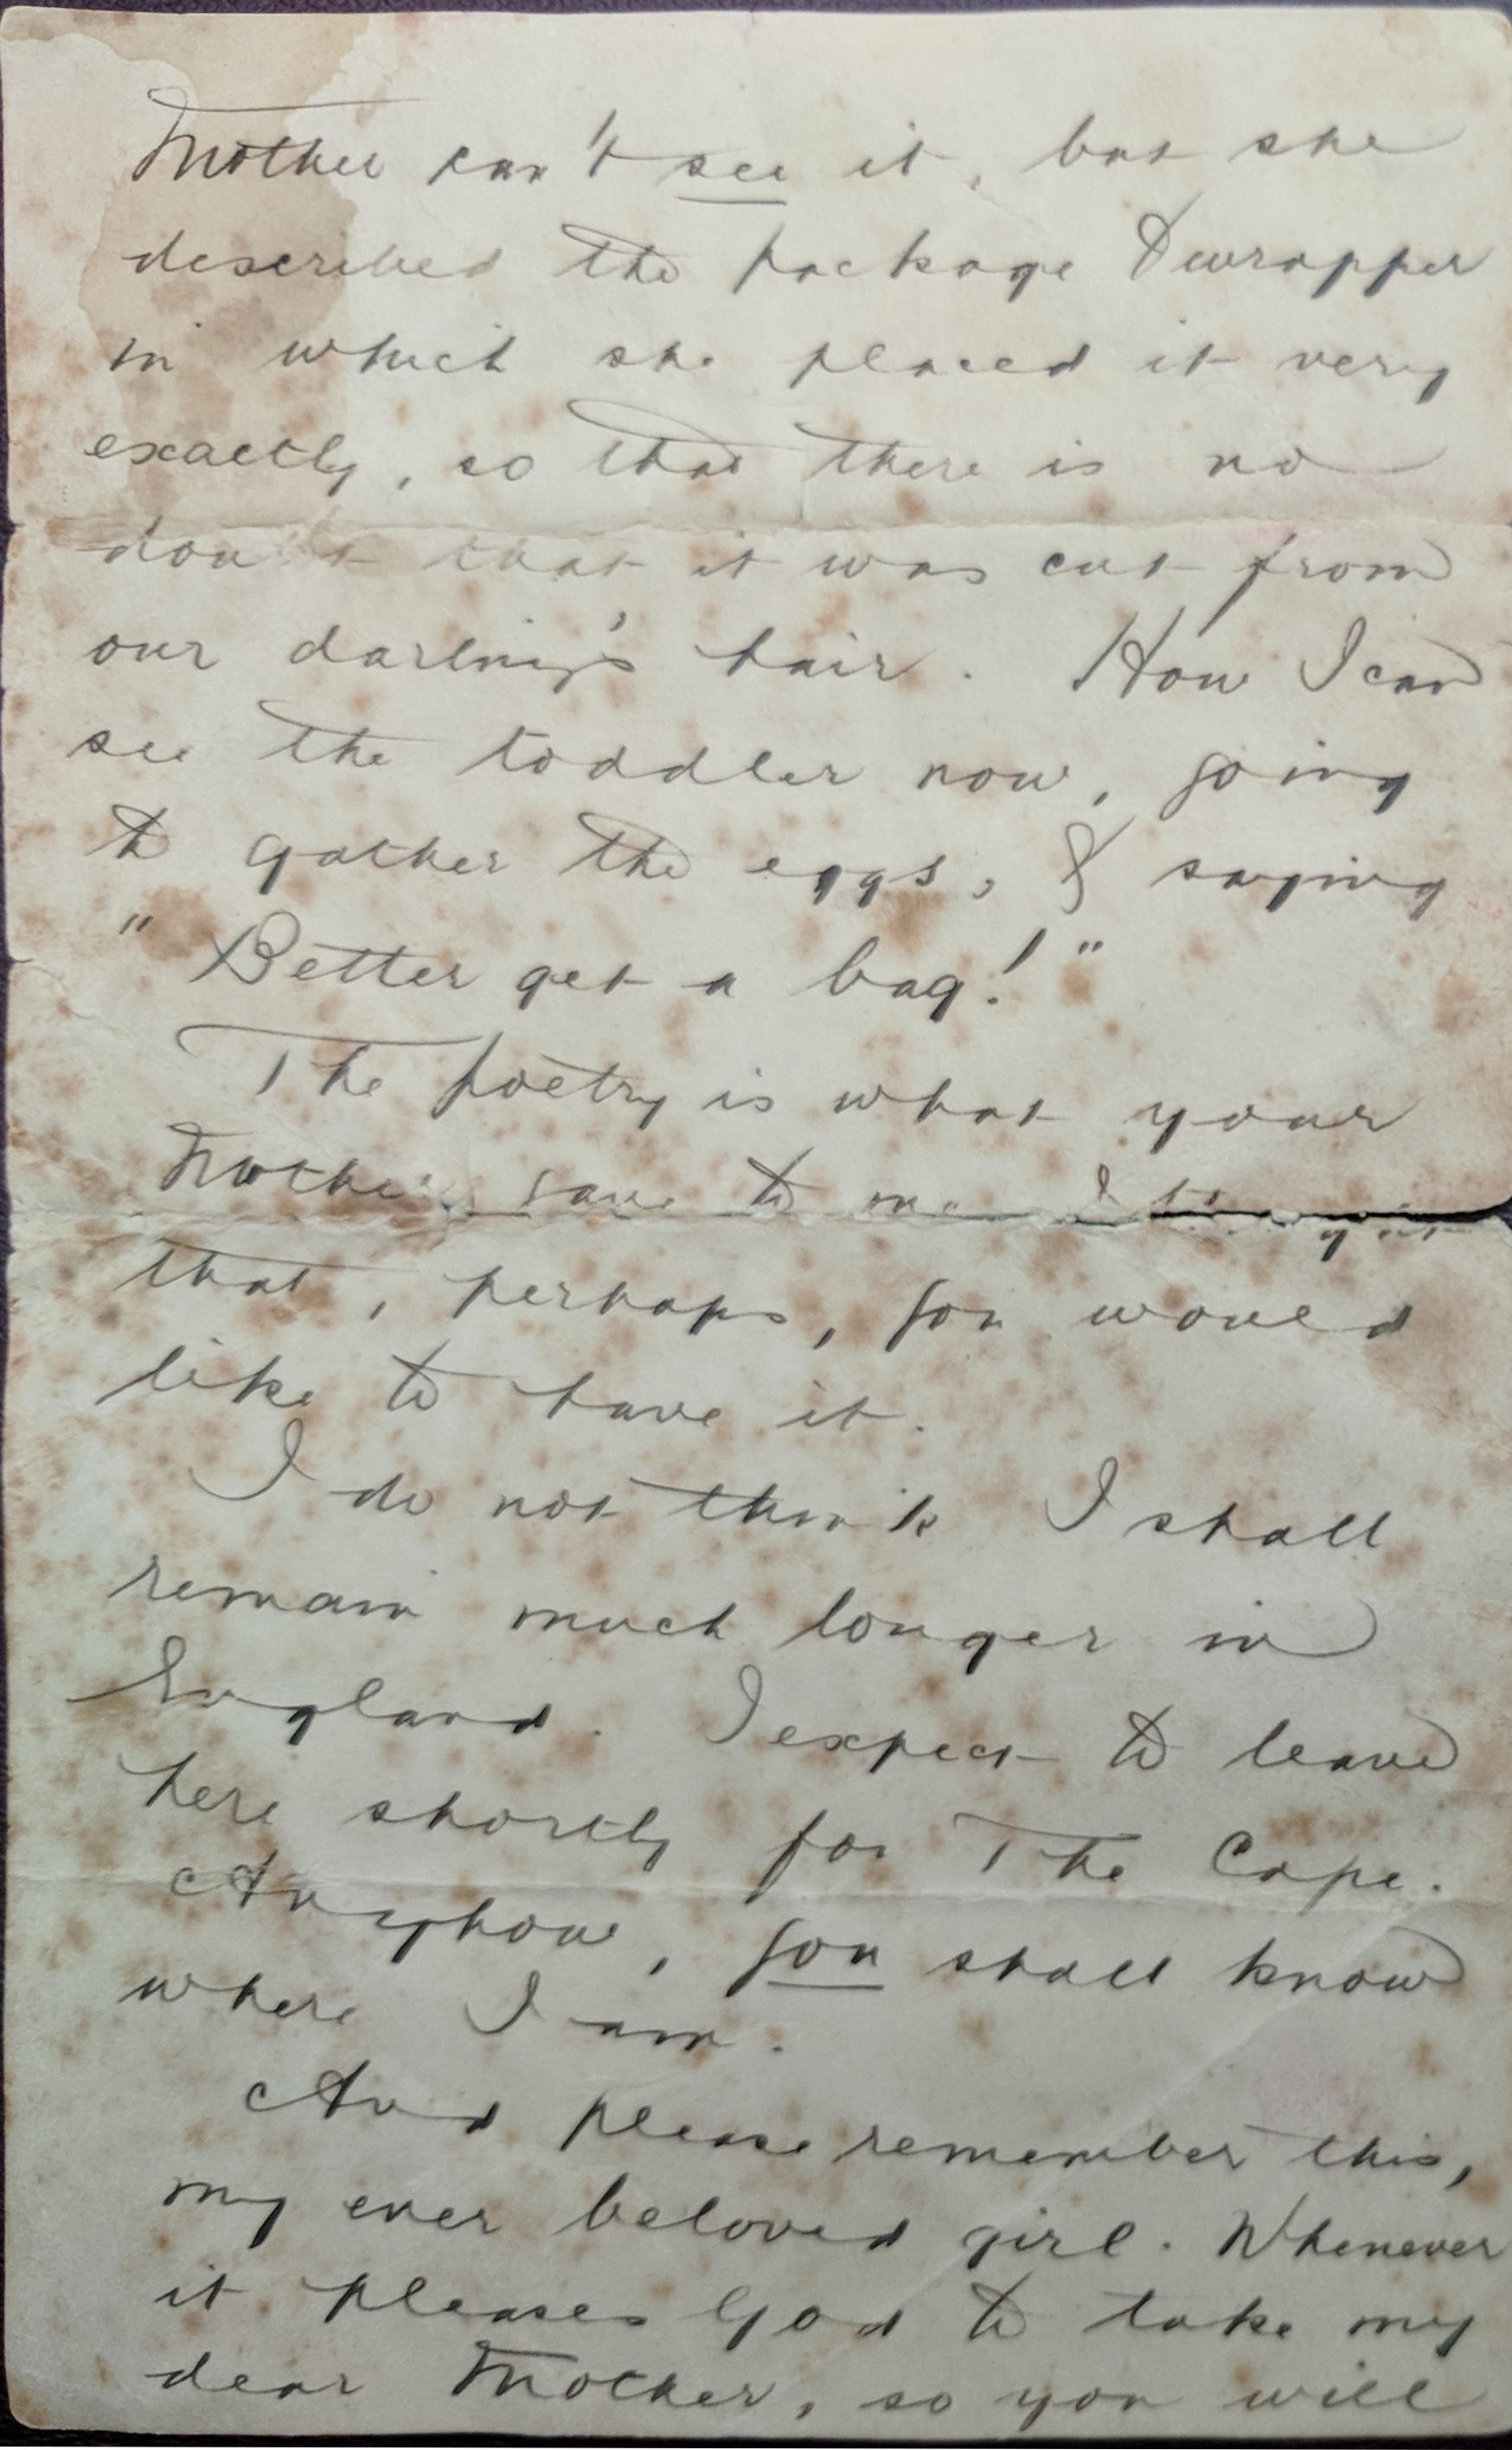 Mother can't see it, but she
described the package & wrapper
in which she placed it very
exactly, so that there is no
doubt that it was cut from
our darling's hair. How I can
see the toddler now, going
to gather the eggs, & saying
"Better get a bag!"
The poetry is what your
Mother gave to me. I
that, perhaps, you would
like to have it.
I do not think I shall
remain much longer in
England. I expect to leave
here shortly for The Cape.
Anyhow, you shall know
where I am.
And please remember this,
my ever beloved girl. Whenever
it pleases God to take my
dear Mother, so you will